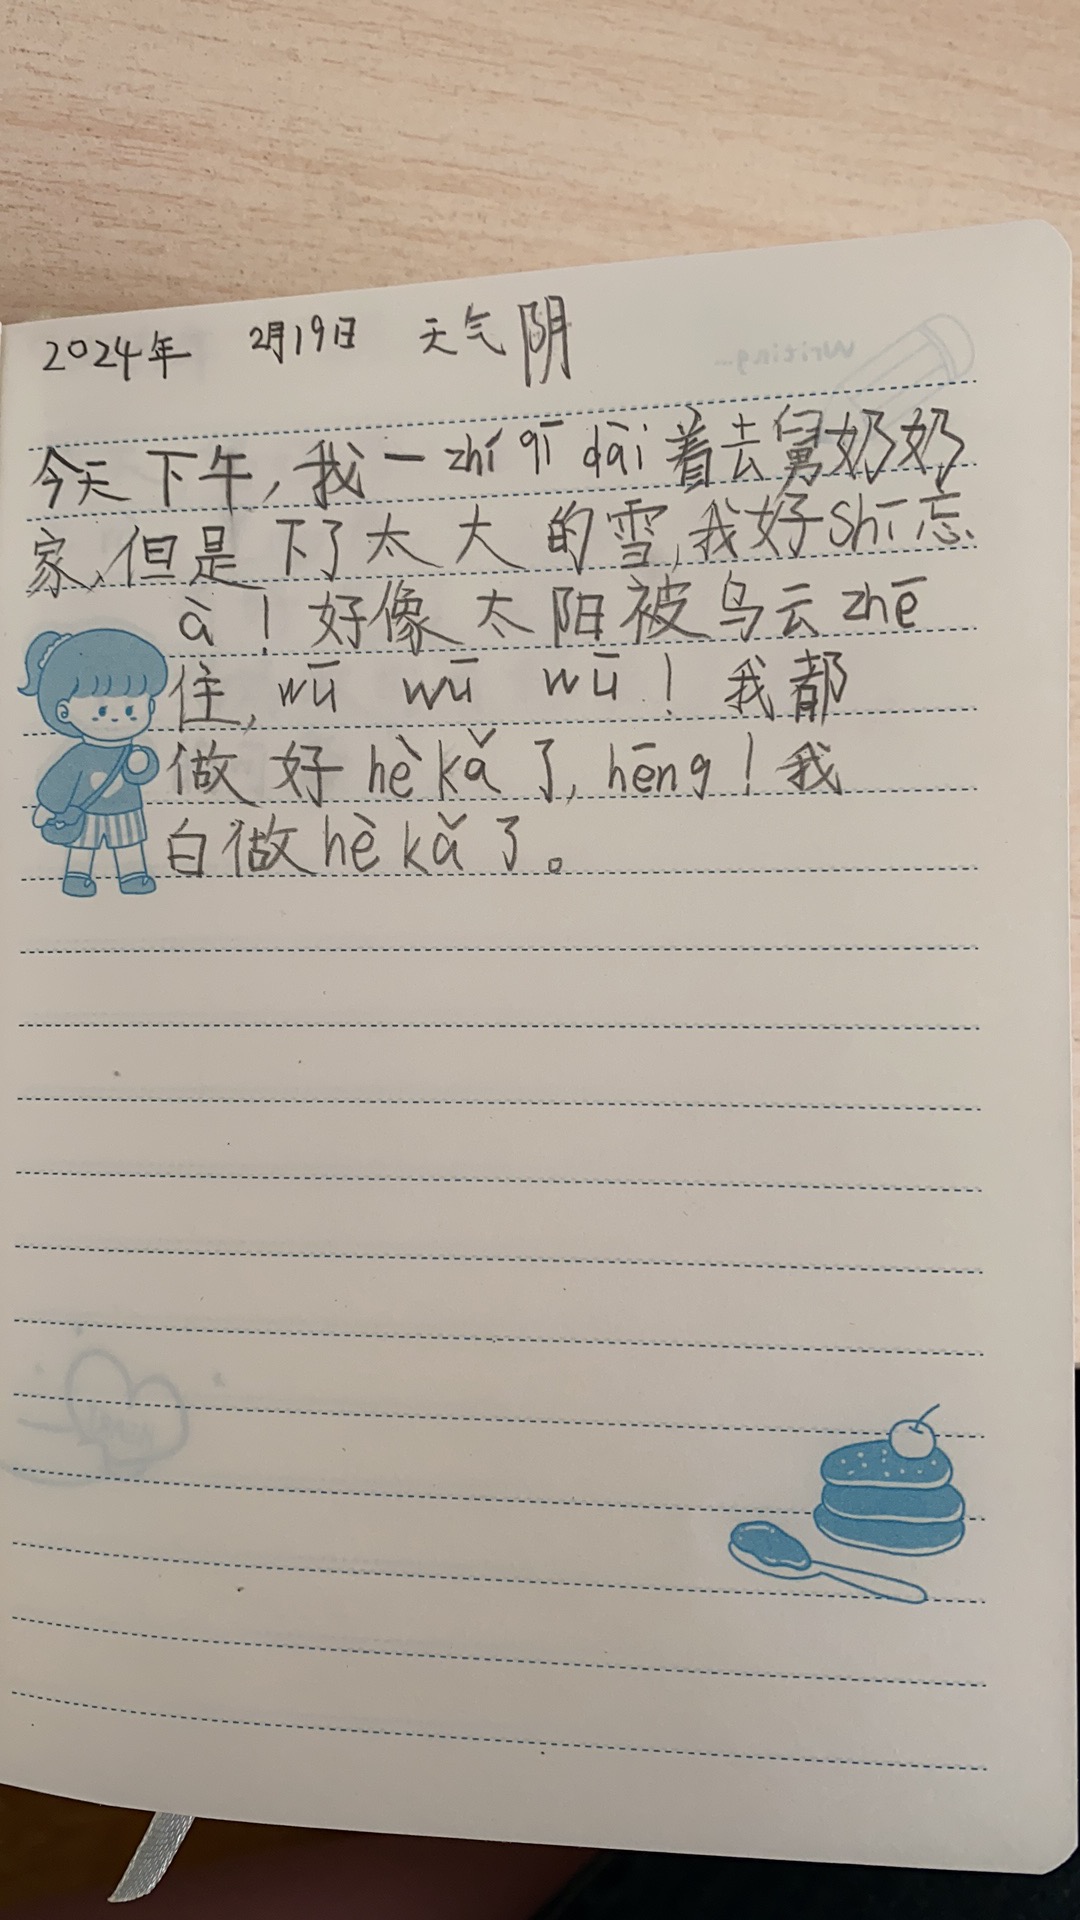 2024年 2月19日 天气阴
今天下午,我一zhí qī dāi着去舅奶奶
家,但是下了太大的雪,我好shī忘
à!好像太阳被乌云zhē
住,wū wū wū!我都
做好hè kǎ了,hēng!我
白做hè kǎ了。
Writing...